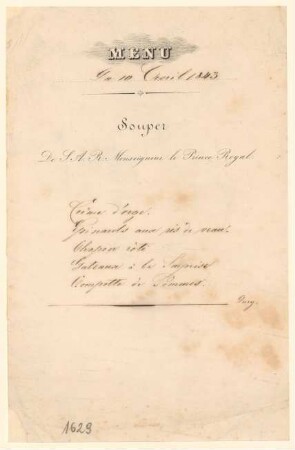 MENU
Du 10 Avril 1843
Souper
De S.A.R. Monseigneur le Prince Royal
Crème d'orge.
Epinards aux ris de veau.
Chapon rôti
Gateaux à la
Compotte de Pommes.
1629